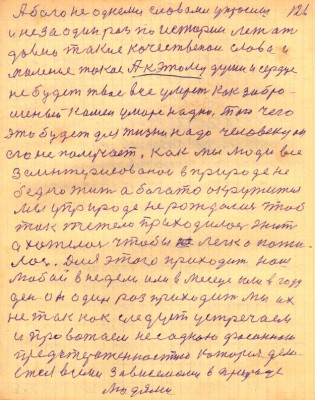 А Бога не одними словами упросиш 126
и не за один раз по истории лет ат
давно такие качественои слова и
мыленье такое А к этому души и сердце
не будет твое все умрет как забро-
шеный камен умире надно, того чего
это будет для жизни надо человеку он
его не получает, как мы люди все
заинтерисованои в природе не
бедно жит а богато окружится
мы у природе не рождалися чтоб
так тяжело приходилос жит
а хотелос чтобы легко пожи-
лос. Для этого приходит наш
любой в недели или в месяце или в году
ден он один раз приходит мы их
не так как следует устречаем
и провожаем не с одною физичной
представленностию которая дела-
ется всеми зависемами в природе
людями